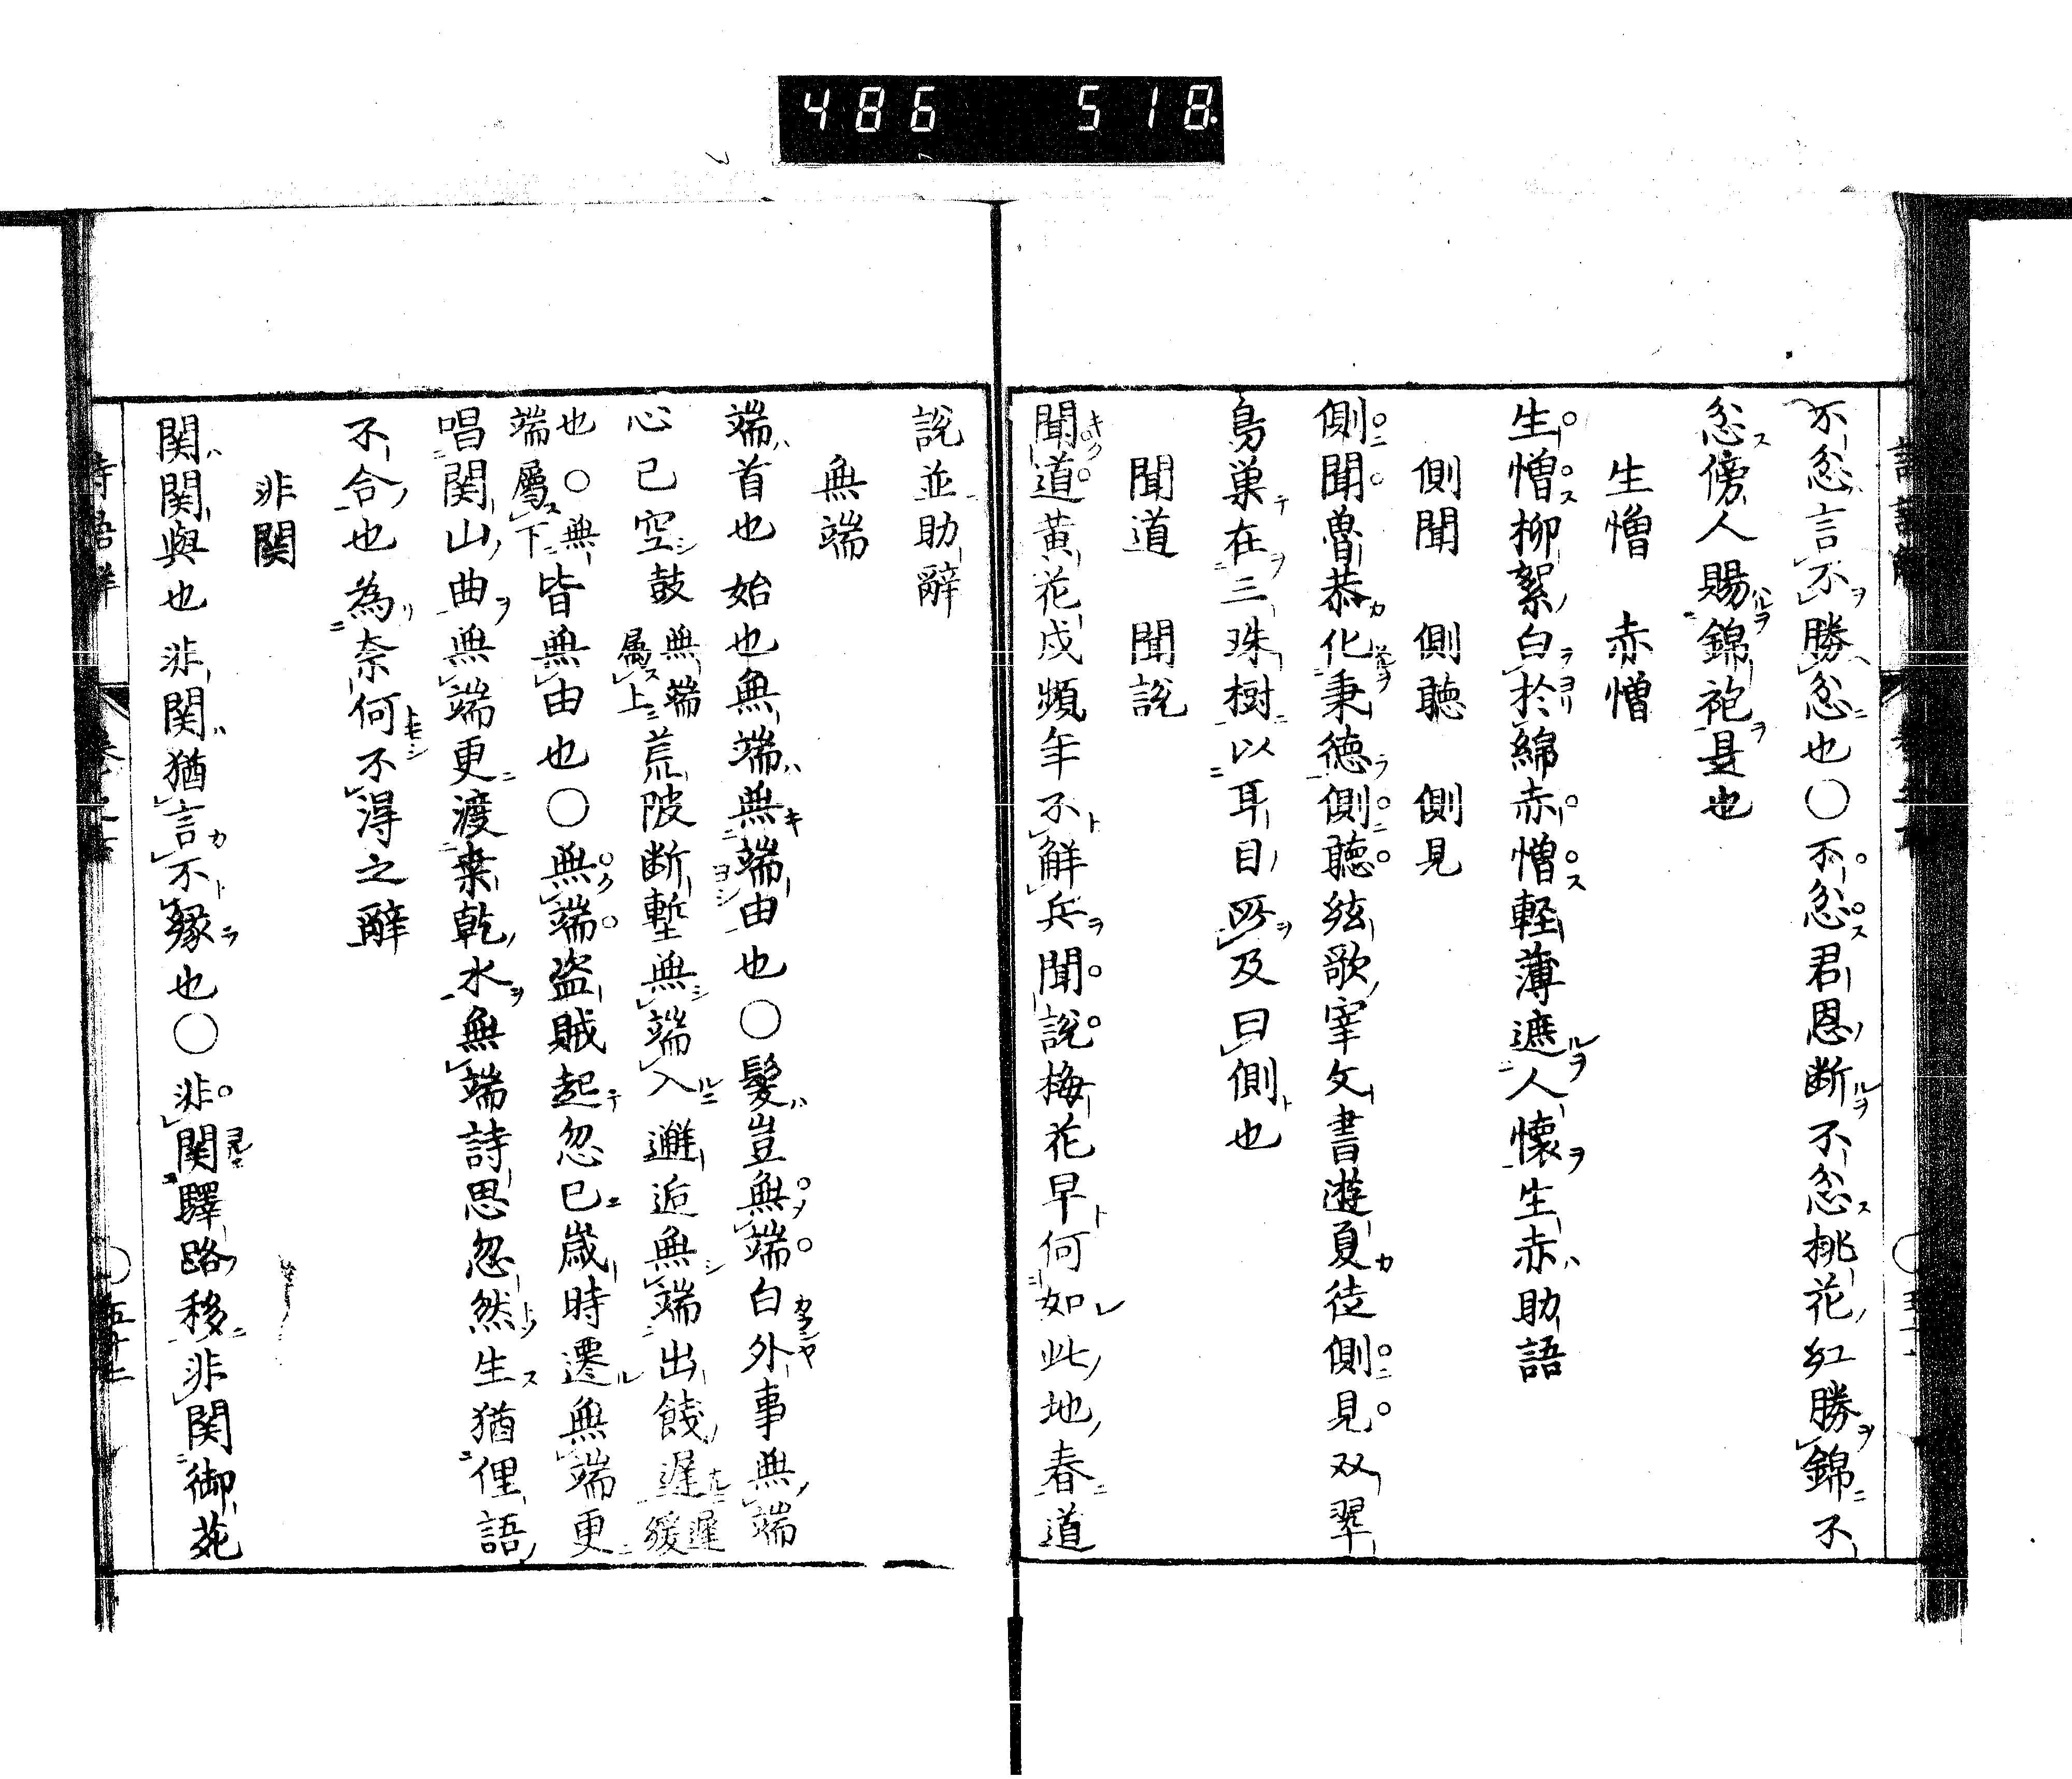 486 518
不忿言不勝忿也〇不忿君恩断不忿桃花紅勝錦不
忿傍人賜錦袍是也
生憎 赤憎
生憎柳絮白於綿赤憎軽薄遮人懐生赤助語
側聞 側聴 側見
側聞魯恭化秉徳側聴絃歌宰文書遊夏徒側見双翠
鳥巣在三珠樹以耳目所及曰側也
聞道 聞説
聞道黄花戍頻年不解兵聞説梅花早何如此地春道
説並助辭
無端
端首也始也無端無端由也〇髮豈無端白外事無端
心已空鼓無端属上荒陂断塹無端入邂逅無端出餞遅遅緩
也〇無端属下皆無由也〇無端盗賊起忽已歳時遷無端更
唱関山曲無端更渡桒乾水無端詩思忽然生猶俚語
不合也為奈何不得之辭
非関
関関與也非関猶言不縁也〇非関驛路移非関御苑